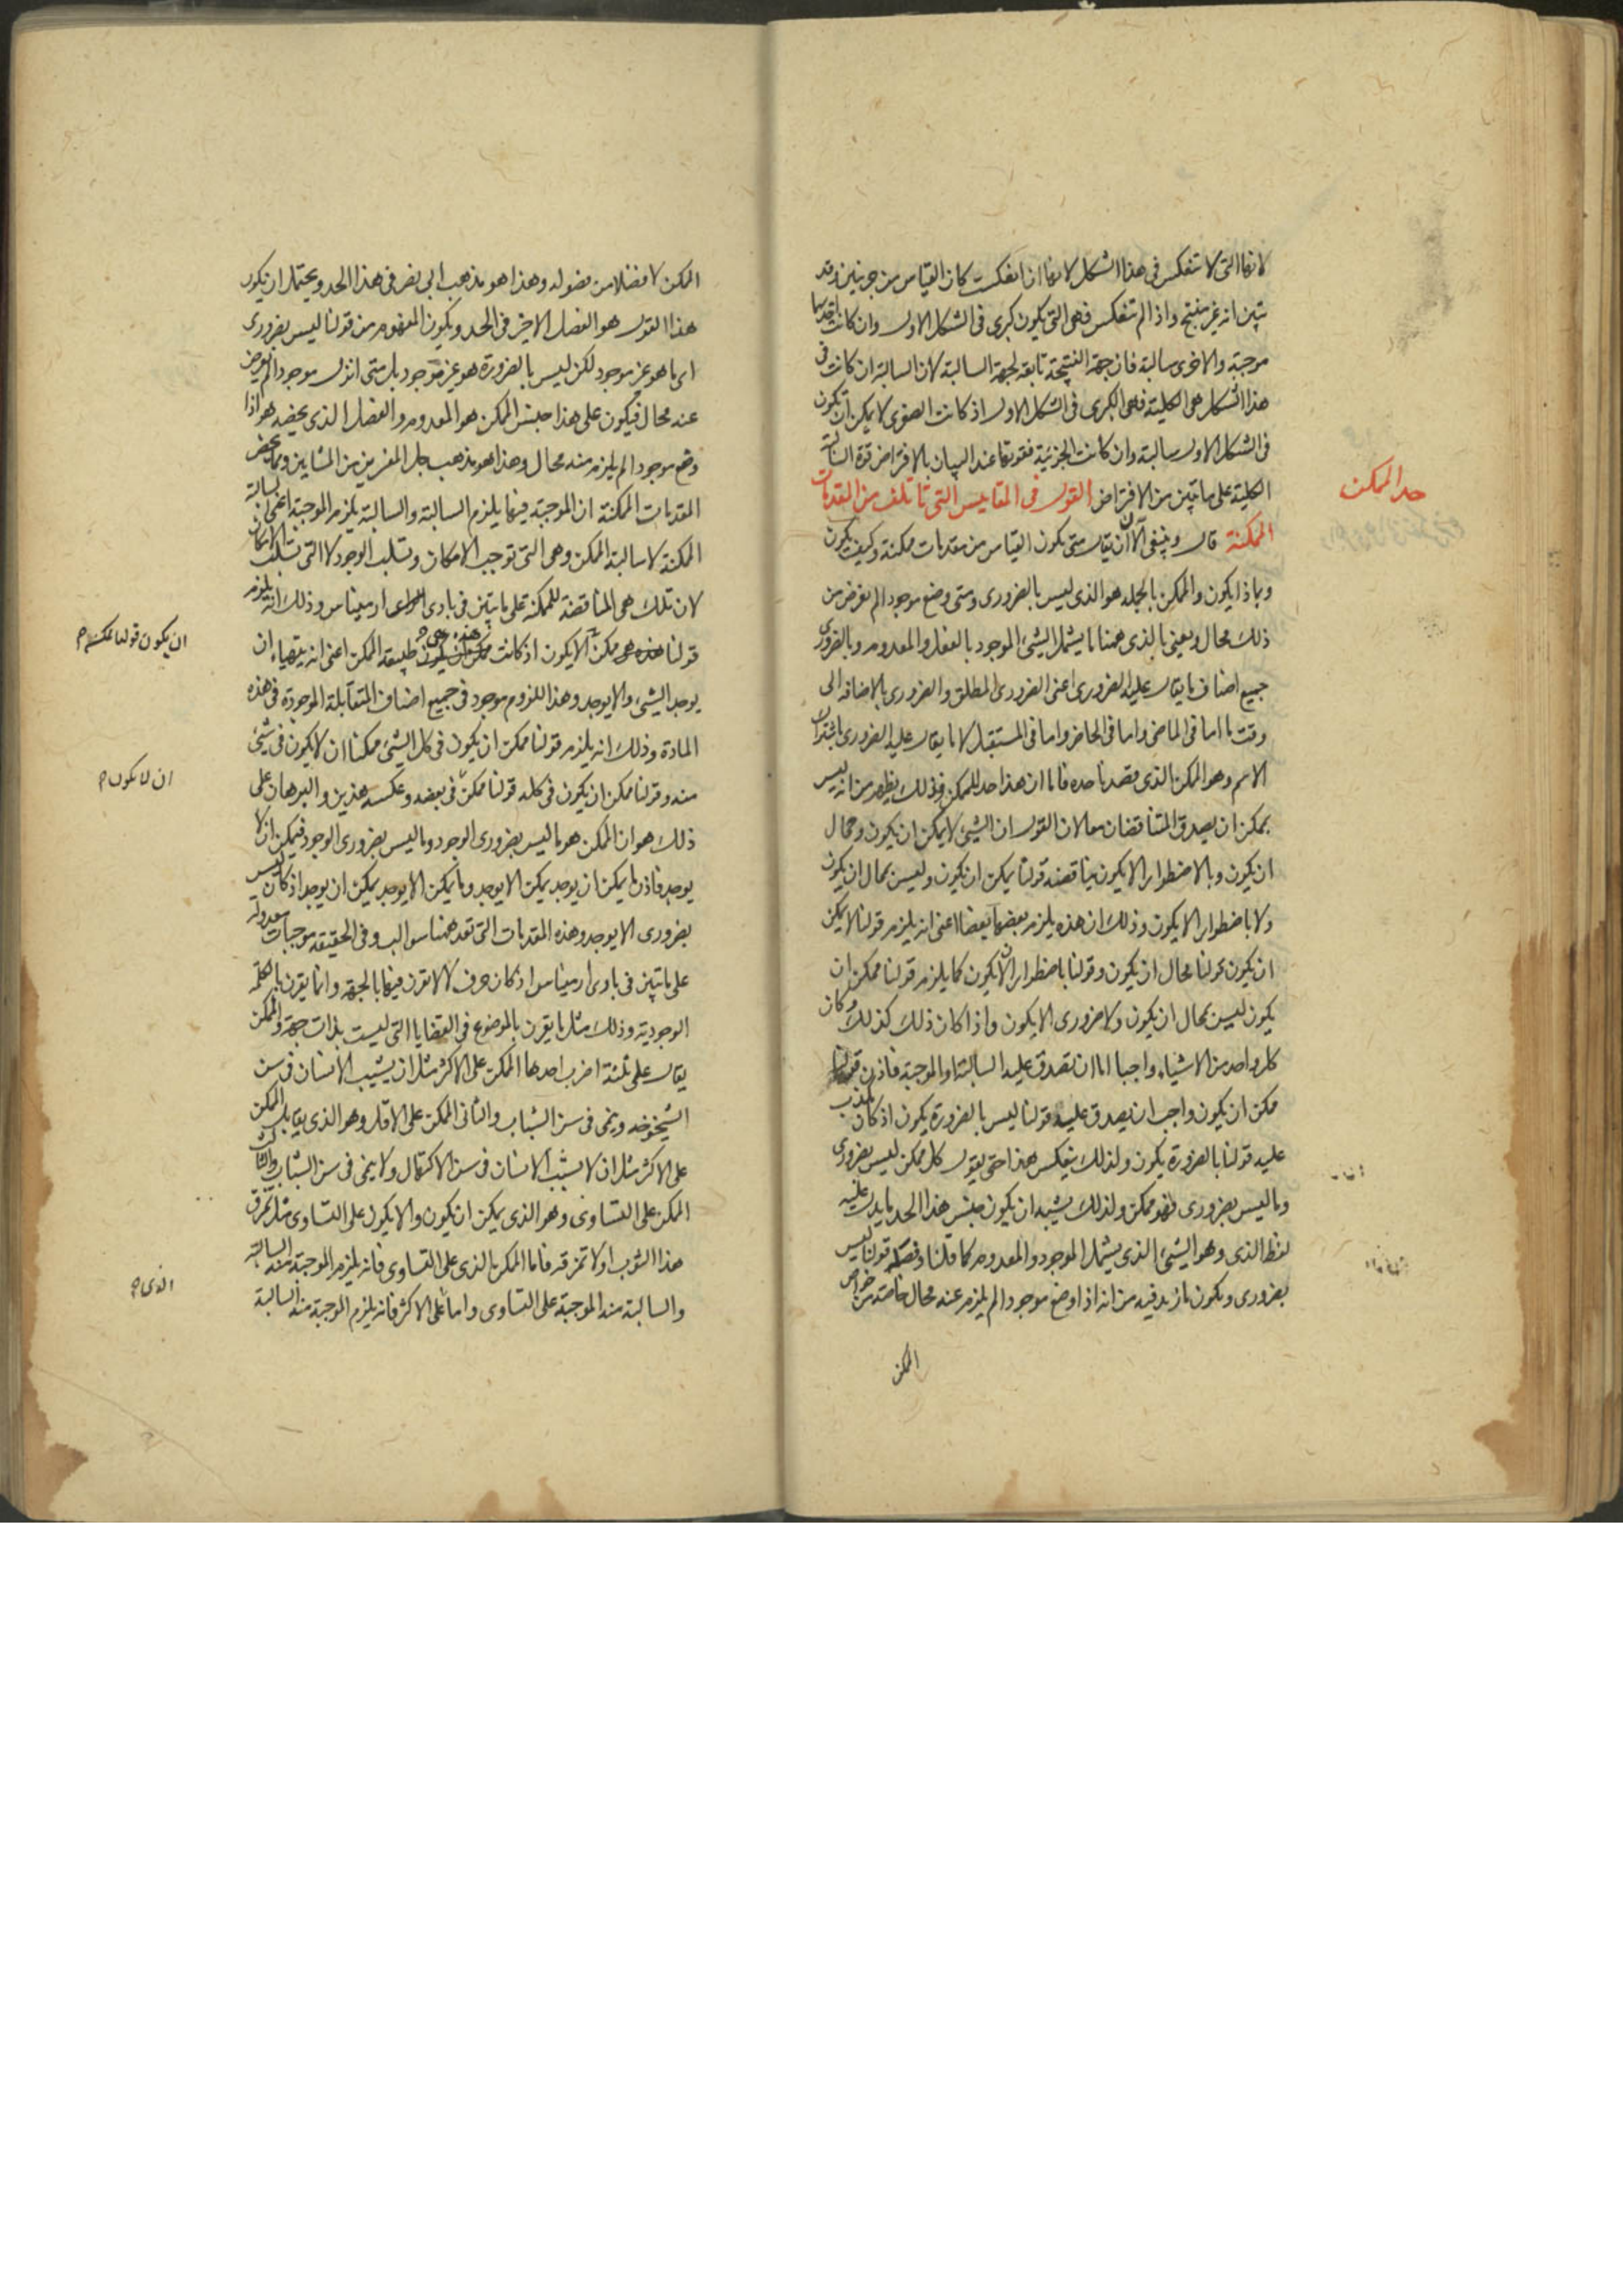 لانها التى لا تنعكس فى هذا الشكل لانها ان انعكست كان القياس من جزئيتين وقد
تبين انه غير منتج واذا لم تنعكس فهى التى تكون كبرى فى الشكل الاول وان كانت احديهما
موجبة والاخرى سالبة فان جهة النتيجة تابعة لجهة السالبة لان السالبة ان كانت فى
هذا الشكل هى الكلية فهى الكبرى فى الشكل الاول اذ كانت الصغرى لا يمكن ان تكون
فى الشكل الاول سالبة وان كانت الجزئية فقوتها عند البيان بالافتراض قوة السالبة
الكلية على ما تبين من الافتراض القول فى المقاييس التى تاتلف من المقدمات
الممكنة قال وينبغى الآن ان يقال متى يكون القياس من مقدمات ممكنة وكيف يكون
وبماذا يكون والممكن بالجملة هو الذى ليس بالضرورى ومتى وضع موجودا لم يعرض من
ذلك محال ويعنى بالذى ههنا ما يشمل الشيئ الموجود بالفعل والمعدوم وبالضرورى
جميع اصناف ما يقال عليه الضرورى اعنى الضرورى المطلق والضرورى بالاضافة الى
وقت ما اما فى الماضى واما فى الحاضر واما فى المستقبل لا ما يقال عليه الضرورى باشتراك
الاسم وهو الممكن الذى قصدنا حده فاما ان هذا حد للممكن فذلك يظهر من انه ليس
يمكن ان يصدق المتناقضان معا لان القول ان الشيئ لا يمكن ان يكون ومحال
ان يكون وبالاضطرار الا يكون يناقضه قولنا يمكن ان يكون وليس بمحال ان يكون
ولا باضطرار الا يكون وذلك ان هذه يلزم بعضها بعضا اعنى انه يلزم قولنا لا يمكن
ان يكون قولنا محال ان يكون وقولنا باضطرار ان لا يكون كما يلزم قولنا ممكن ان
يكون ليس بمحال ان يكون ولا ضرورى الا يكون واذا كان ذلك كذلك وكان
كل واحد من الاشياء واجبا اما ان تصدق عليه السالبة او الموجبة فاذن قولنا
ممكن ان يكون واجب ان يصدق عليه قولنا ليس بالضرورة يكون اذ كان يكذب
عليه قولنا بالضرورة يكون ولذلك ينعكس هذا حتى يقول كل ممكن ليس بضرورى
وما ليس بضرورى فهو ممكن ولذلك يشبه ان يكون جنس هذا الحد ما يدل عليه
لفظ الذى وهو الشيئ الذى يشمل الموجود والمعدوم كما قلنا وفصله قولنا ليس
بضرورى ويكون ما زيد فيه من انه اذا وضع موجودا لم يلزم عنه محال خاصة من خواص
الممكن
حد الممكن
الممكن لا فضلا من فصوله وهذا هو مذهب ابى نصر فى هذا الحد ويحتمل ان يكون
هذا القول هو الفصل الاخير فى الحد ويكون المفهوم من قولنا ليس بضرورى
اى ما هو غير موجود لكن ليس بالضرورة هو غير موجود بل متى انزل موجودا لم يعرض
عنه محال فيكون على هذا جنس الممكن هو المعدوم والفصل الذى يخصه هو اذا
وضع موجودا لم يلزم منه محال وهذا هو مذهب جل المفسرين من المشايين ومما يخص
المقدمات الممكنة ان الموجبة فيها يلزم السالبة والسالبة يلزم الموجبة اعنى سالبة
الممكنة لا سالبة الممكن وهى التى توجب الامكان وتسلب الوجود لا التى تسلب الامكان
لان تلك هى المناقضة للممكنة على ما تبين فى بارى ارمينياس وذلك انه يلزم
قولنا ممكن الا يكون اذ كانت هذه هى طبيعة الممكن اعنى انه يتهياء ان
يوجد الشيئ والا يوجد وهذا اللزوم موجود فى جميع اصناف المتقابلة الموجودة فى هذه
المادة وذلك انه يلزم قولنا ممكن ان يكون فى كل الشيئ ممكنا ان لا يكون فى شيئ
منه وقولنا ممكن ان يكون فى كله قولنا ممكن فى بعضه وعكسه هذين والبرهان على
ذلك هو ان الممكن هو ما ليس بضرورى الوجود وما ليس بضرورى الوجود فيمكن ان لا
يوجد فاذن ما يمكن ان يوجد يمكن الا يوجد وما يمكن الا يوجد يمكن ان يوجد اذ كان ليس
بضرورى الا يوجد وهذه المقدمات التى تعد ههنا سوالب وفى الحقيقة موجبات معدولة
على ما تبين فى بارى ارمينياس اذ كان حرف لا لا تقرن فيها بالجهة وانما يقرن بالكلمة
الوجودية وذلك مثل ما يقرن بالموضوع فى القضايا التى ليست بذات جهة والممكن
يقال على ثلثة اضرب احدها الممكن على الاكثر مثل ان يشيب الانسان فى سن
الشيخوخة وينمى فى سن الشباب والثانى الممكن على الاقل وهو الذى يقابل الممكن
على الاكثر مثل ان لا يشيب الانسان فى سن الاكتهال ولا ينمى فى سن الشباب والثالث
الممكن على التساوى وهو الذى يمكن ان يكون والا يكون على التساوى مثل تمزق
هذا الثوب او لا تمزقه فاما الممكن الذى على التساوى فانه يلزم الموجبة منه السالبة
والسالبة منه الموجبة على التساوى واما على الاكثر فانه يلزم الموجبة منه السالبة
ان يكون قولنا ممكن
ان لا يكون
الذى